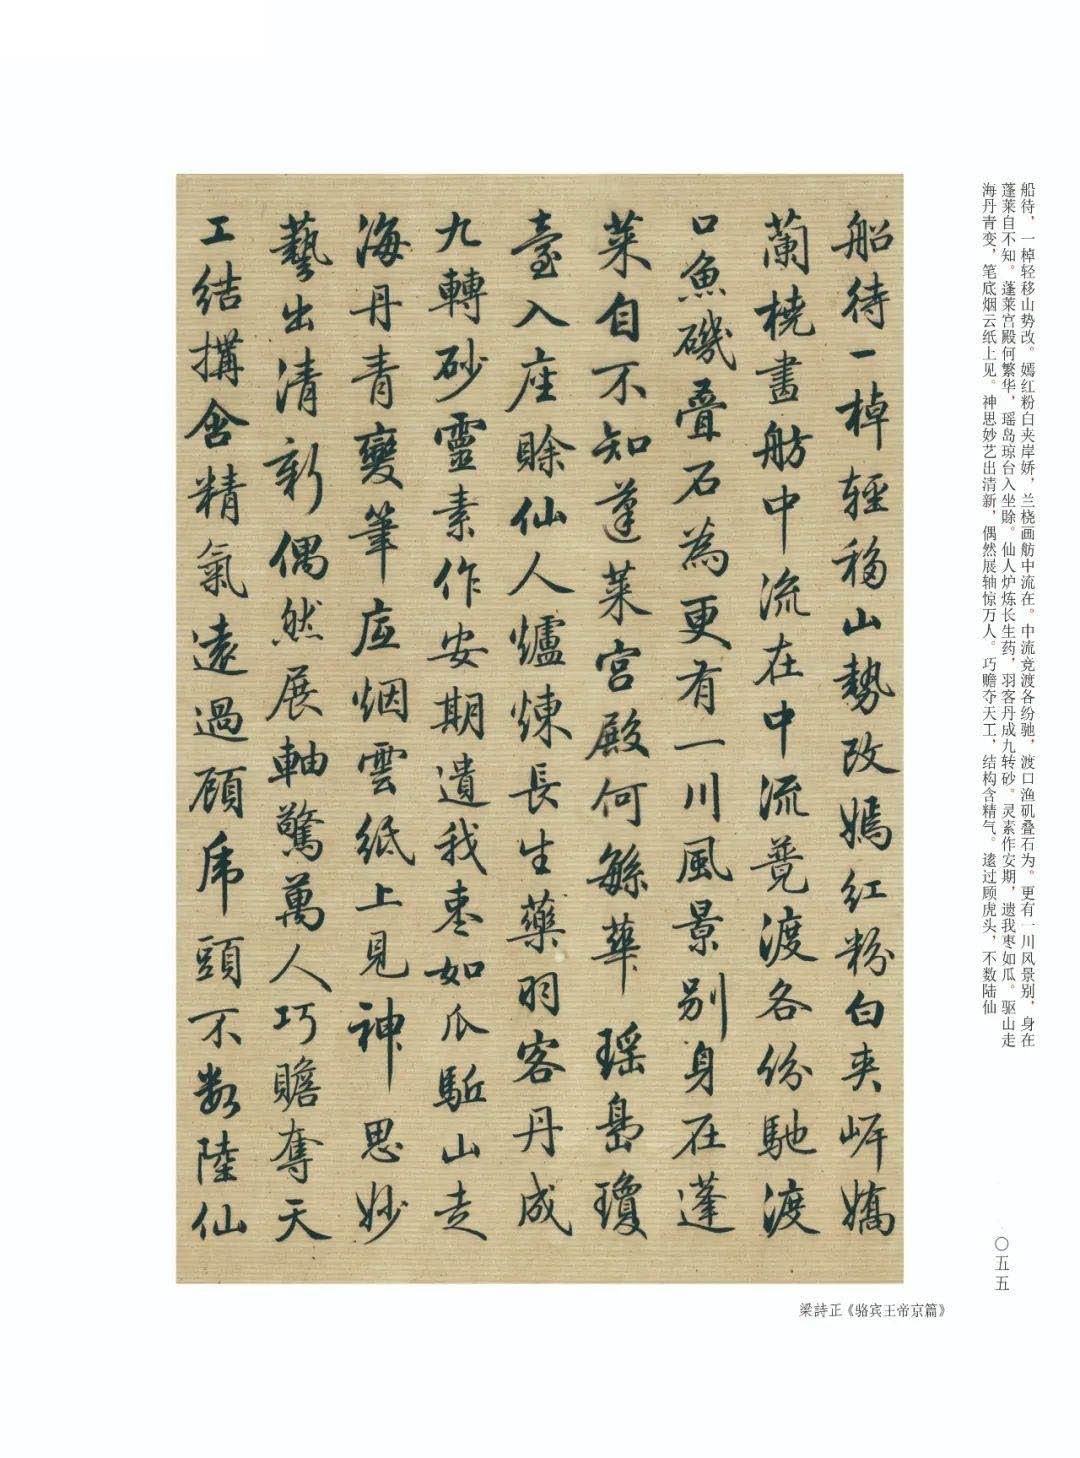 船待，一棹轻移山势改。嫣红粉白夹岸娇，兰桡画舫中流在。中流竞渡各纷驰，渡口渔矶叠石为。更有一川风景别，身在
蓬莱自不知。蓬莱宫殿何繁华，瑶岛琼台入坐赊。仙人炉炼长生药，羽客丹成九转砂。灵素作安期，遗我枣如瓜。驱山走
海丹青变，笔底烟云纸上见。神思妙艺出清新，偶然展轴惊万人。巧赡夺天工，结构含精气。逺过顾虎头，不数陆仙
船待一棹輕移山勢改嫣紅粉白夾岍嬌
蘭橈畫舫中流在中流竞渡各份馳渡
口魚磯疊石為更有一川風景別身在蓬
萊自不知蓬萊宮殿何繁華瑶島瓊
臺入座賖仙人爐煉長生藥羽客丹成
九轉砂靈素作安期遺我枣如瓜駈山走
海丹青變筆底烟雲紙上見神思妙
藝出清新偶然展軸驚萬人巧贍奪天
工結構含精氣逺過顧虎頭不数陸仙
〇五五
梁詩正《骆宾王帝京篇》